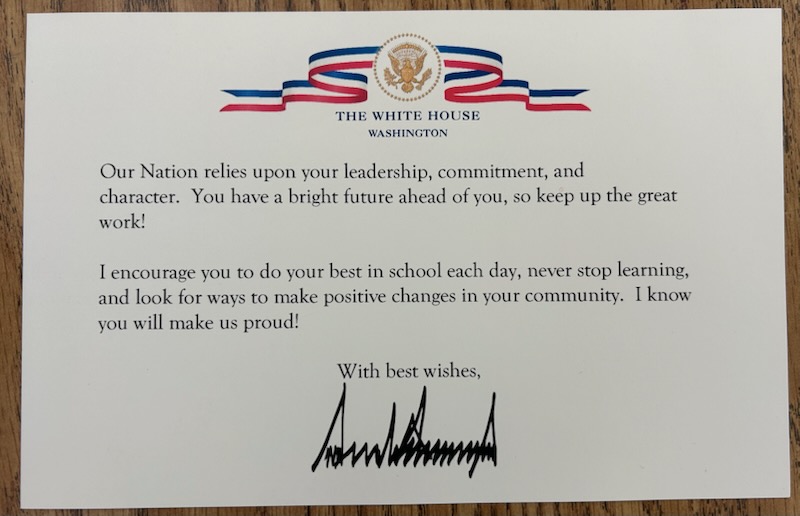 THE WHITE HOUSE
WASHINGTON
Our Nation relies upon your leadership, commitment, and
character. You have a bright future ahead of you, so keep up the great
work!
I encourage you to do your best in school each day, never stop learning,
and look for ways to make positive changes in your community. I know
you will make us proud!
With best wishes,